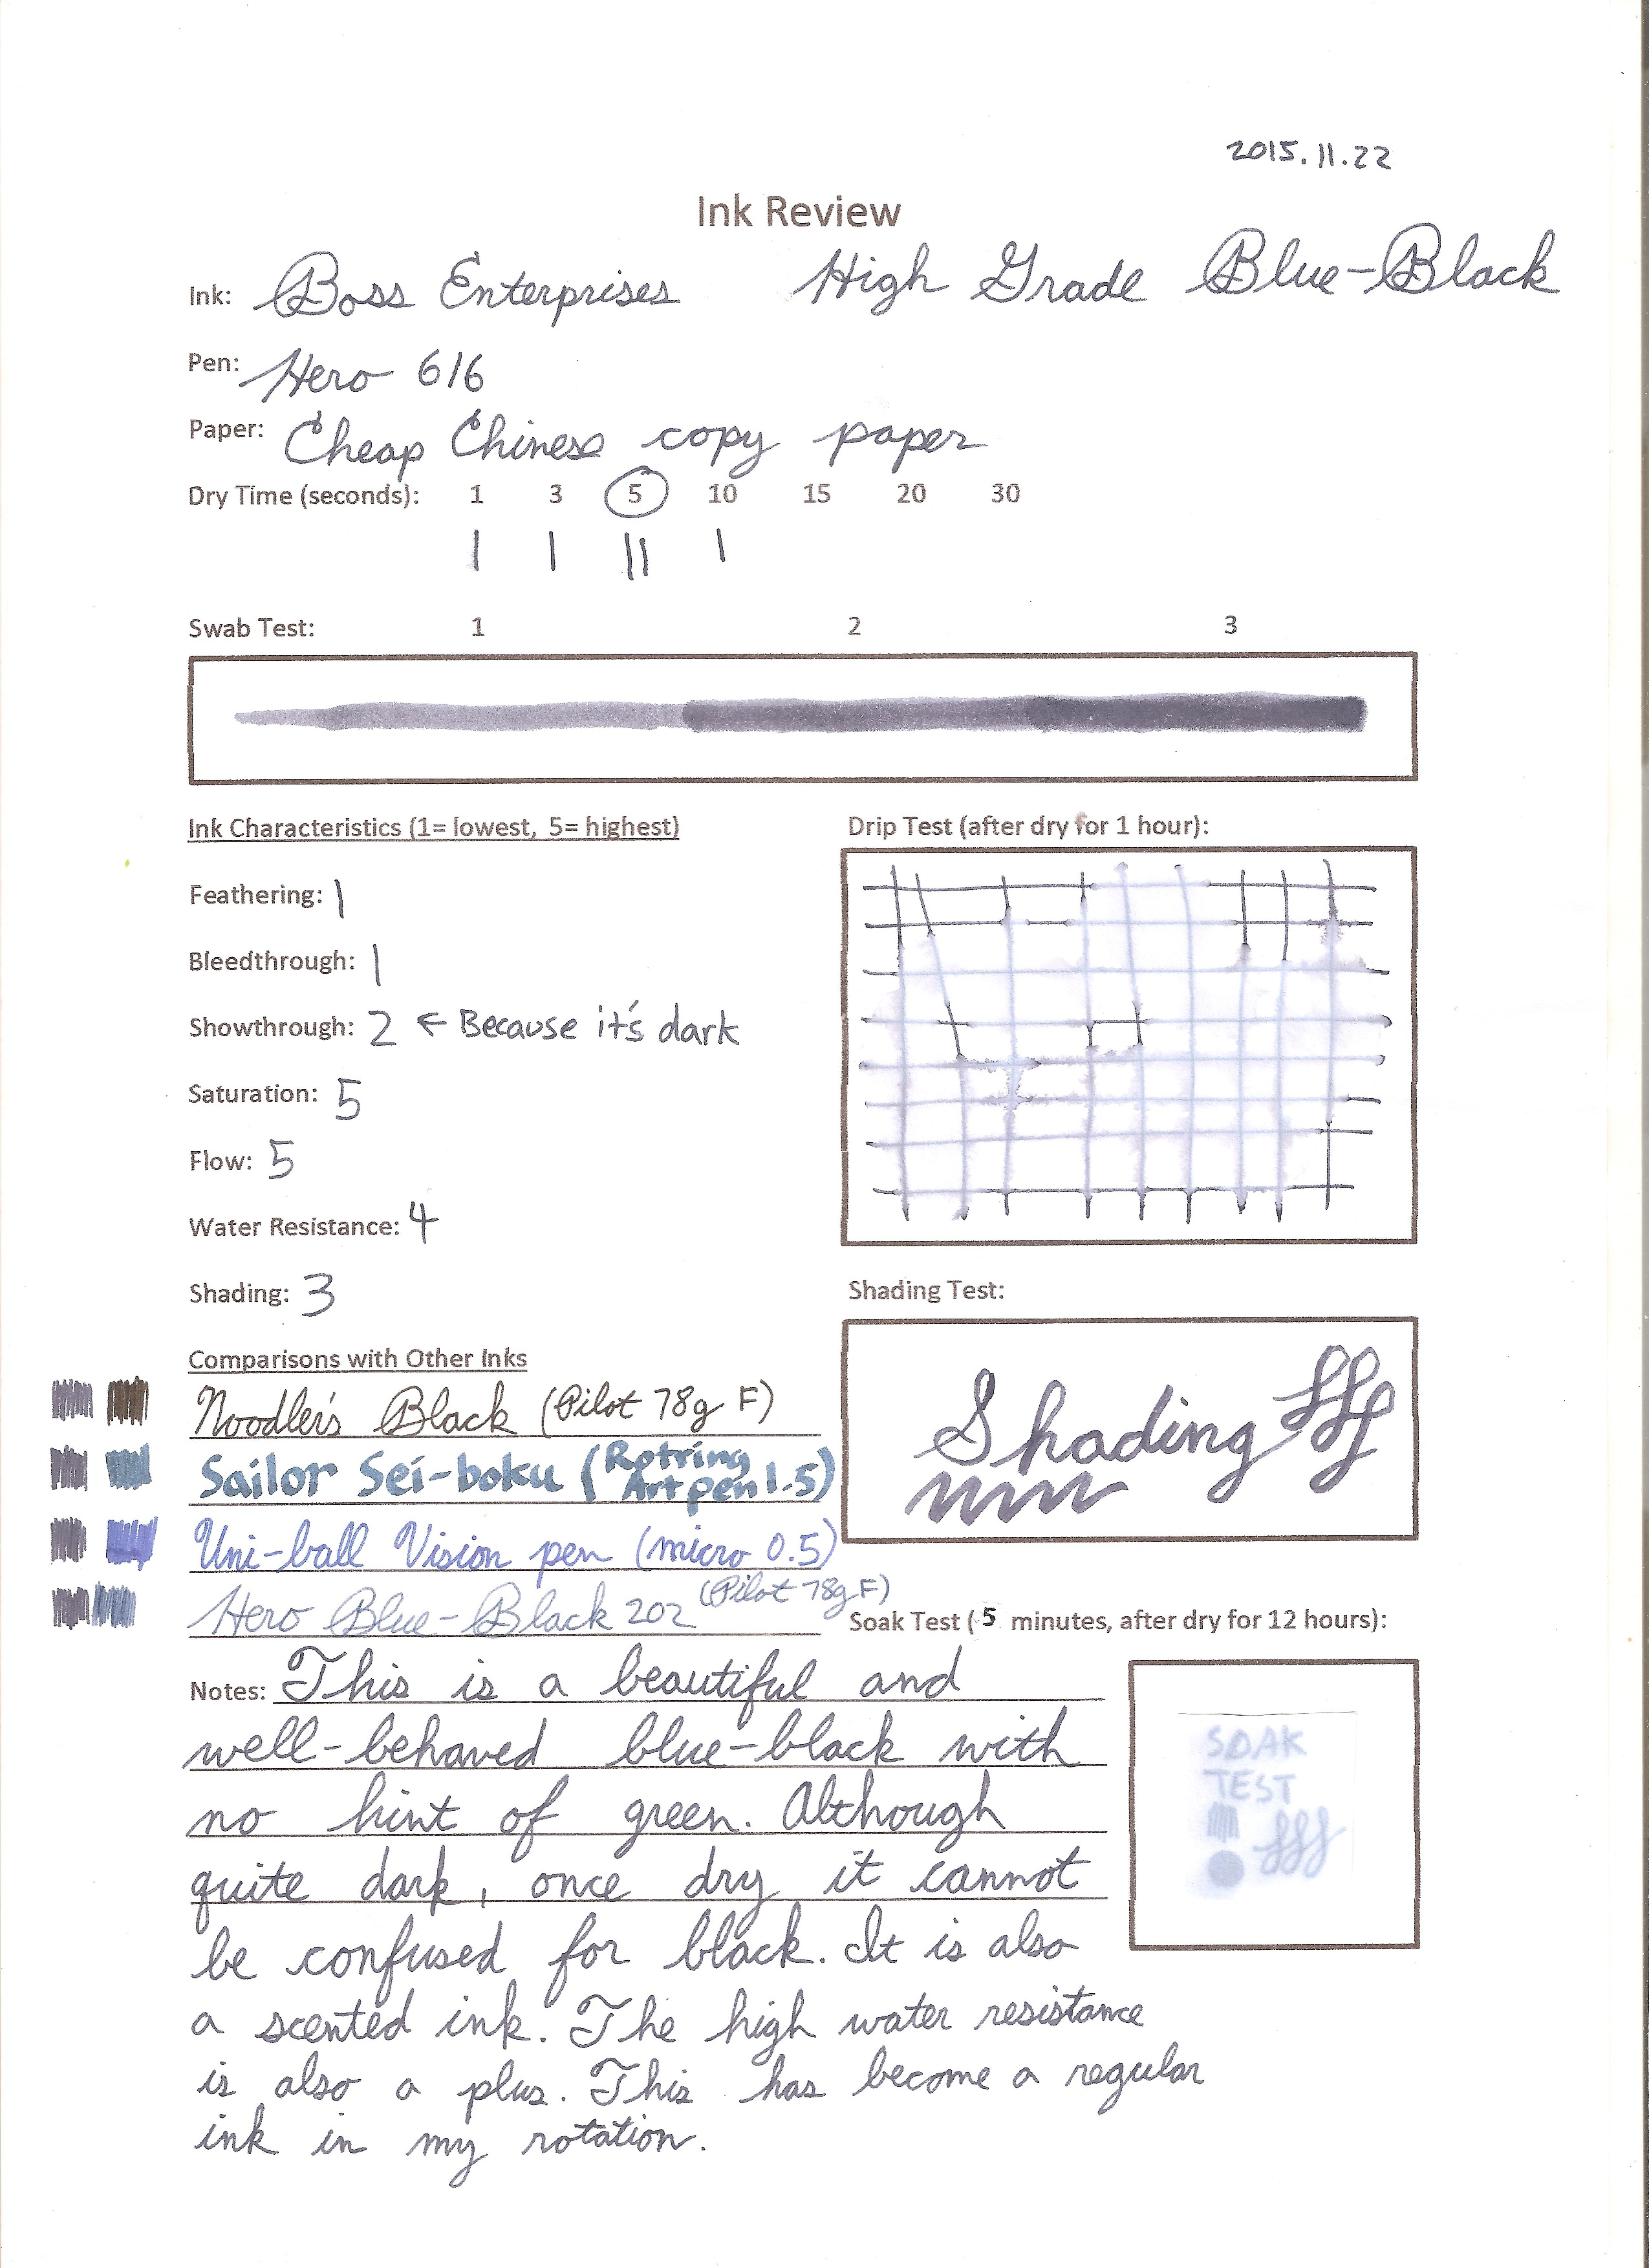 2015.11.22
Ink Review
Ink: Boss Enterprises High Grade Blue-Black
Pen: Hero 616
Paper: Cheap Chinese copy paper
Dry Time (seconds): 1 3 5 10 15 20 30
Swab Test: 1 2 3
Ink Characteristics (1= lowest, 5= highest)
Feathering: 1
Bleedthrough: 1
Showthrough: 2 ← Because it's dark
Saturation: 5
Flow: 5
Water Resistance: 4
Shading: 3
Drip Test (after dry for 1 hour):
Shading Test:
Shading fff
Comparisons with Other Inks
Noodler's Black (Pilot 78g F)
Sailor Sei-boku (Rotring Art pen 1.5)
Uni-ball Vision pen (micro 0.5)
Hero Blue-Black 202 (Pilot 78g F)
Soak Test (5 minutes, after dry for 12 hours):
SOAK
TEST
fff
Notes: This is a beautiful and
well-behaved blue-black with
no hint of green. Although
quite dark, once dry it cannot
be confused for black. It is also
a scented ink. The high water resistance
is also a plus. This has become a regular
ink in my rotation.